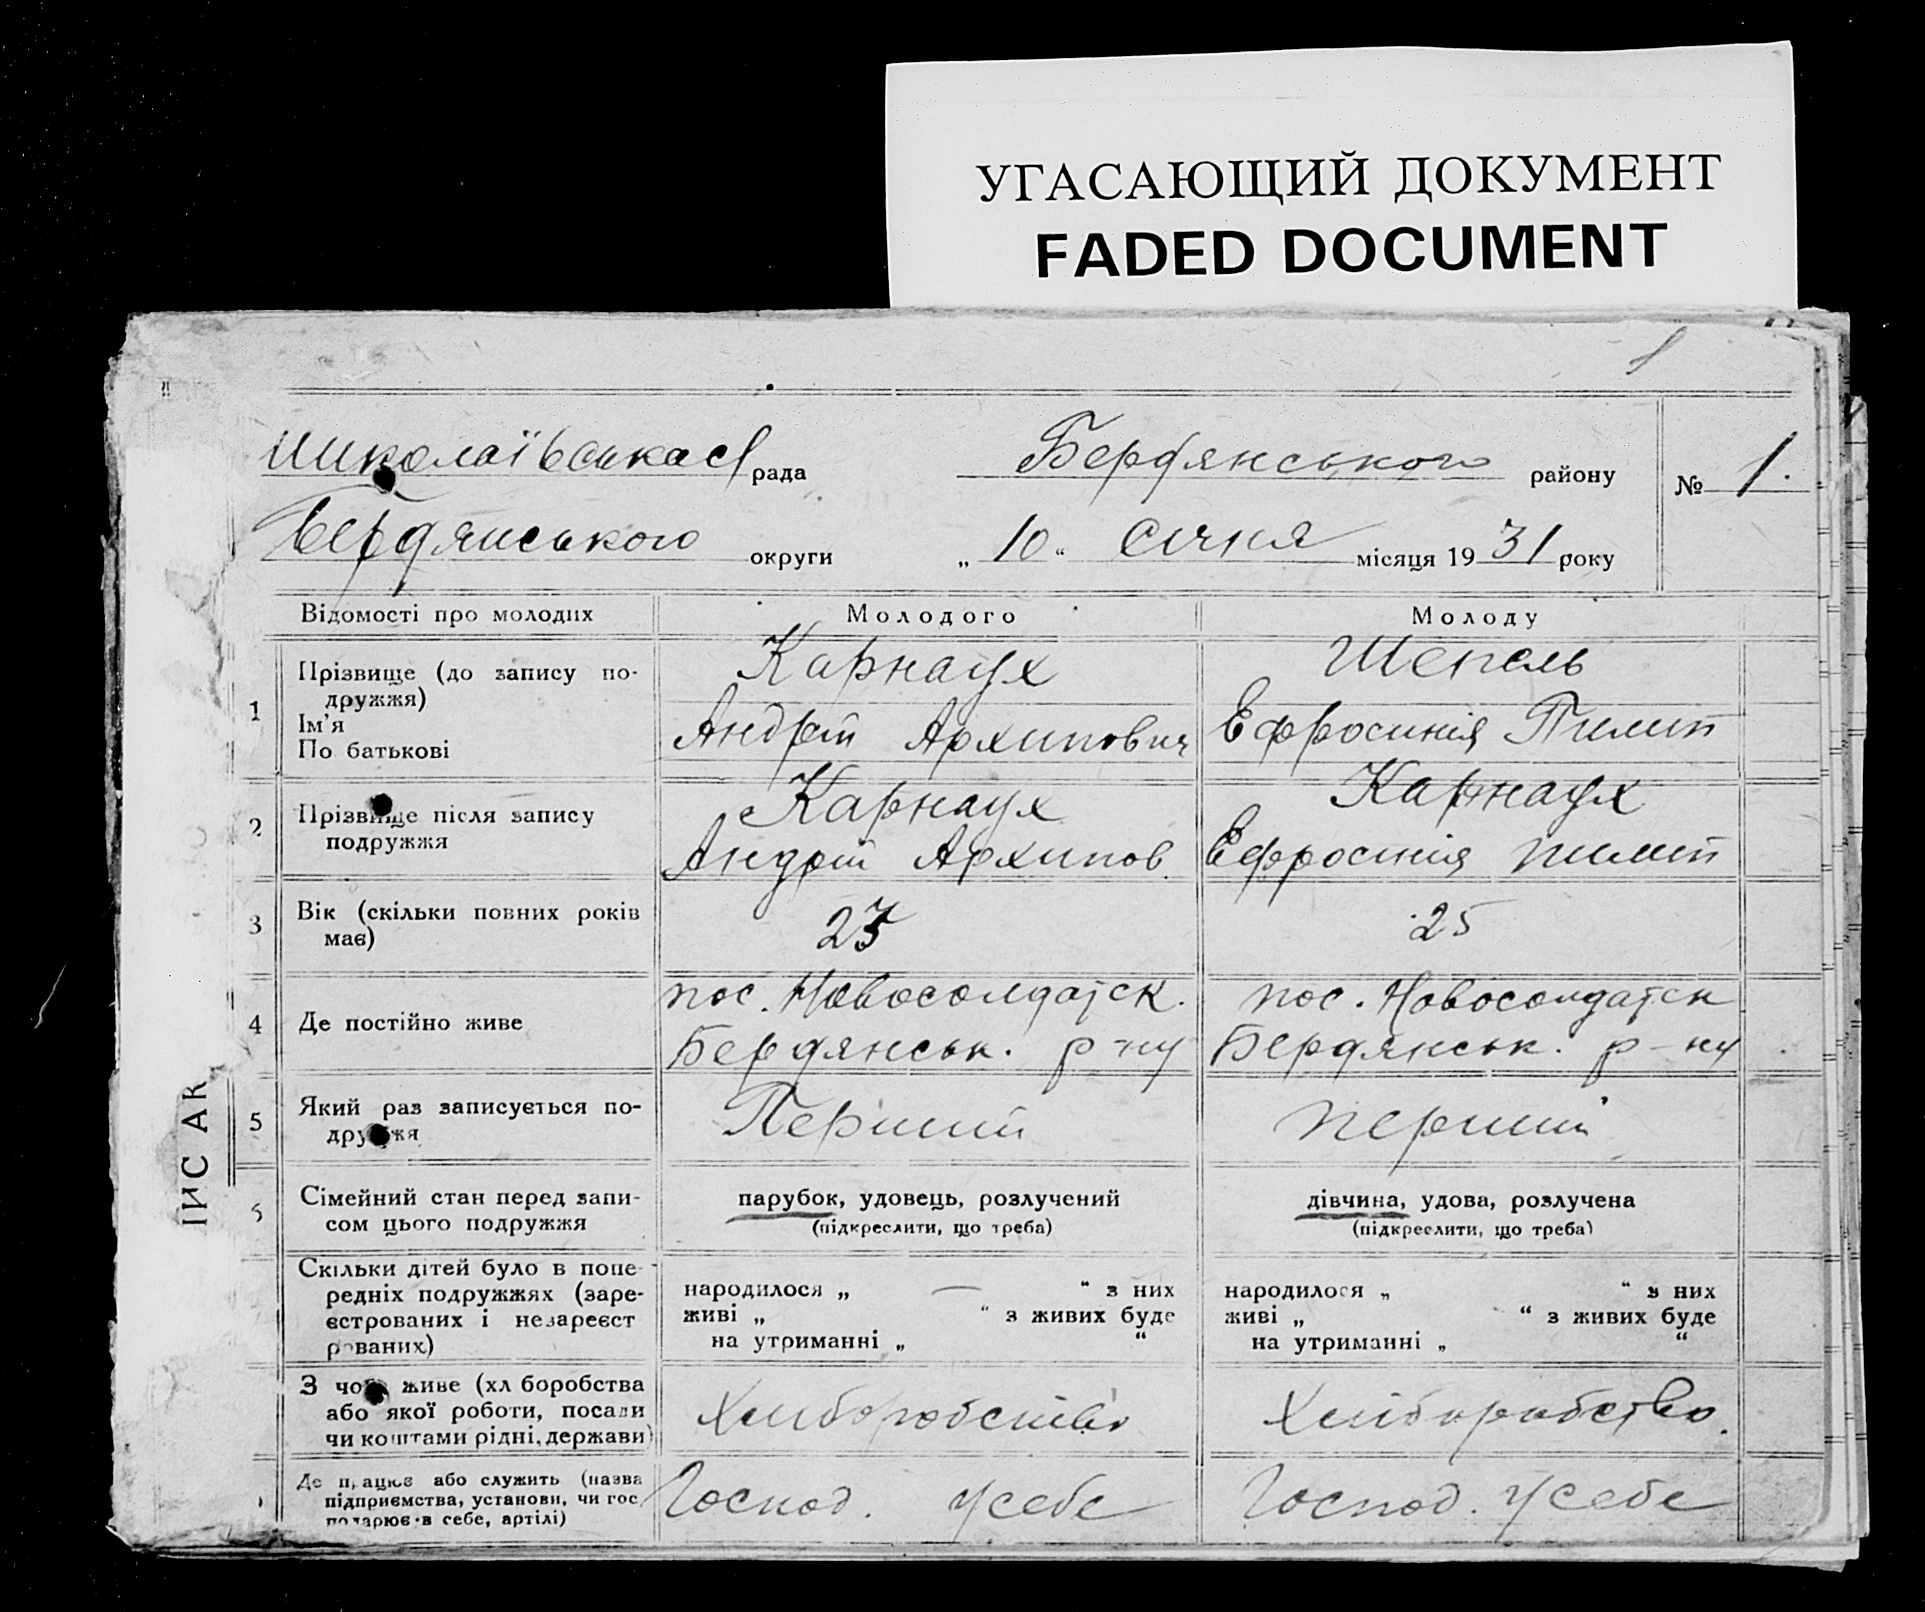 УГАСАЮЩИЙ ДОКУМЕНТ
FADED DOCUMENT
1
Миколаївська с/рада Бердянського району № 1.
Бердянського округи „ 10 “ січня місяця 1931 року
Відомості про молодих Молодого Молоду
1 Прізвище (до запису по-
дружжя)
Ім’я
По батькові
Карнаух
Андрій Архипович
Шепель
Ефросинія Пилип
2 Прізвище після запису
подружжя
Карнаух
Андрій Архипов
Карнаух
Ефросинія Пилип
3 Вік (скільки повних років
має)
25
4 Де постійно живе
пос. Новосолдатск.
Бердянськ. р-ну
пос. Новосолдатск
Бердянськ. р-ну
5 Який раз записується по-
дружжя
Перший
перший
ІИС АК
Сімейний стан перед запи-
сом цього подружжя
парубок, удовець, розлучений
(підкреслити, що треба)
дівчина, удова, розлучена
(підкреслити, що треба)
Скільки дітей було в попе-
редніх подружжях (заре-
єстрованих і незареєст
рованих)
народилося „ — “ з них
живі „ “ з живих буде
на утриманні „ “
народилося „ “ з них
живі „ “ з живих буде
на утриманні „ “
З чого живе (хл боробства
або якої роботи, посади
чи коштами рідні, держави)
Хліборобство
Хліборобство.
Де працює або служить (назва
підприємства, установи, чи гос
подарює в себе, артілі)
Господ. у себе
Господ. у себе